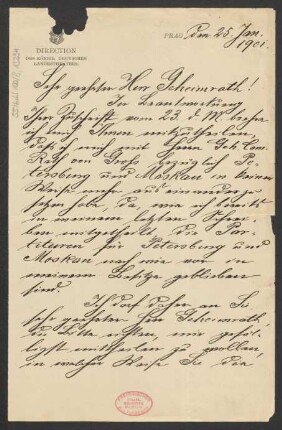 DIRECTION
DES KÖNIGL. DEUTSCHEN
LANDESTHEATERS.
PRAG, den 25. Jan.
1901.
Sehr geehrter Herr Geheimrath!
In Beantwortung
Ihrer Zuschrift vom 23. d. M. beehre
ich mich Ihnen mitzutheilen,
daß ich mich mit Herrn Geh.
Rath von Groß bezüglich Pe-
tersburg und Moskau in keiner
Weise mehr auseinander
setzen habe, da, wie ich bereits
in meinem letzten Schrei-
ben mitgetheilt, die Par-
tituren für Petersburg und
Moskau nach wie vor in
meinem Besitze geblieben
sind.
Ich darf daher an Sie
sehr geehrter Herr Geheimrath
die Bitte mir gefäl-
ligst mittheilen zu wollen,
in welcher Weise Sie die